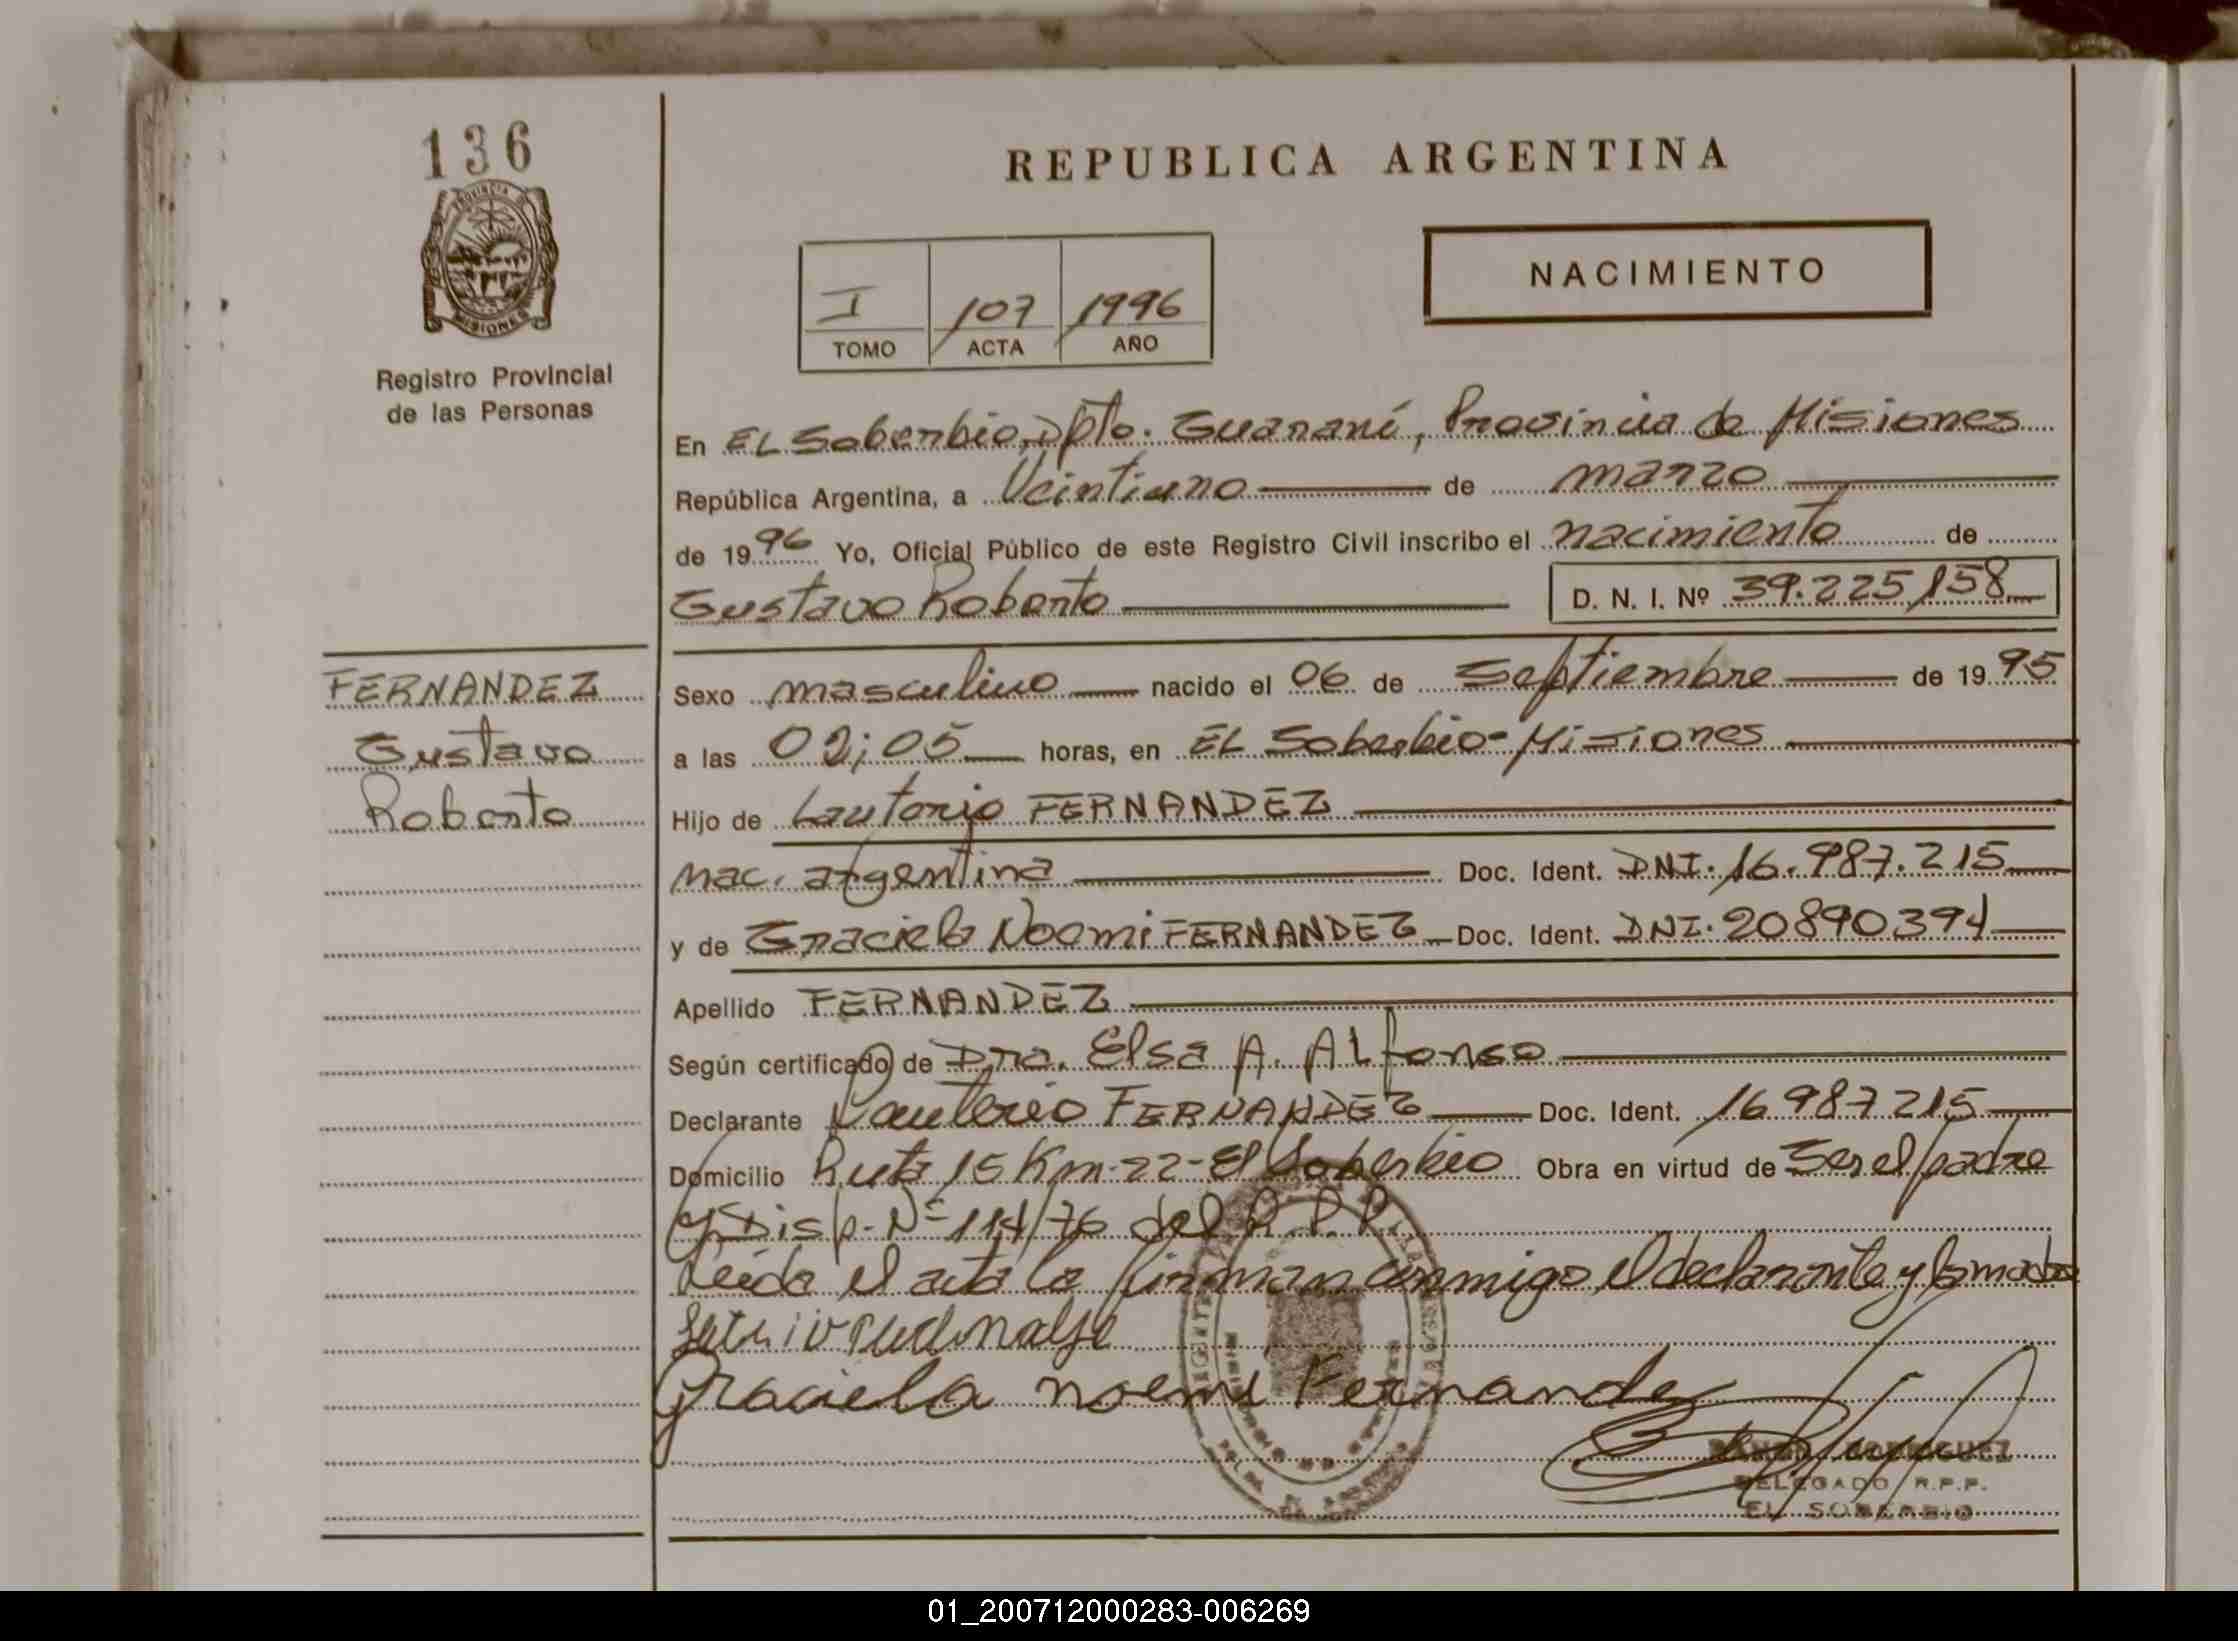 136
PROVINCIA DE
MISIONES
Registro Provincial
de las Personas
REPUBLICA ARGENTINA
NACIMIENTO
I 107 1996
TOMO ACTA AÑO
En EL Soberbio, Dpto. Guaraní, Provincia de Misiones
República Argentina, a Veintiuno de marzo
de 1996 Yo, Oficial Público de este Registro Civil inscribo el nacimiento de
Gustavo Roberto D. N. I. Nº 39.225,158
FERNANDEZ
Gustavo
Roberto
Sexo masculino nacido el 06 de Septiembre de 1995
a las 02;05 horas, en EL Soberbio-Misiones
Hijo de Lauterio FERNANDEZ
nac. argentina Doc. Ident. DNI. 16.987.215
y de Graciela Noemi FERNANDEZ Doc. Ident. DNI. 20890394
Apellido FERNANDEZ
Según certificado de Dra. Elsa A. ALfonso
Declarante Lauterio FERNANDEZ Doc. Ident. 16987215
Domicilio Ruta 15 Km-22-El Soberbio Obra en virtud de Ser el padre
y Disp. Nº 114/76 del R.P.P.
Leída el acta la firman conmigo el declarante y la madre
Graciela noemi Fernandez
DELEGADO R.P.P.
EL SOBERBIO
01_200712000283-006269